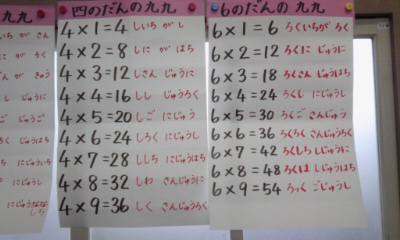 九九
いち が さん
が
が きゅう
じゅうに
じゅうご
じゅうはち
四のだんの九九
4×1=4 しいち がし
4×2=8 しに が はち
4×3=12 しさん じゅうに
4×4=16 しし じゅうろく
4×5=20 しご にじゅう
4×6=24 しろく にじゅうし
4×7=28 ししち にじゅうはち
4×8=32 しわ さんじゅうに
4×9=36 しく さんじゅうろく
6のだんの 九九
6×1=6 ろくいちが ろく
6×2=12 ろくに じゅうに
6×3=18 ろくさん じゅうはち
6×4=24 ろくし にじゅうし
6×5=30 ろくご さんじゅう
6×6=36 ろくろく さんじゅうろく
6×7=42 ろくしち しじゅうに
6×8=48 ろくは しじゅうはち
6×9=54 ろっく ごじゅうし